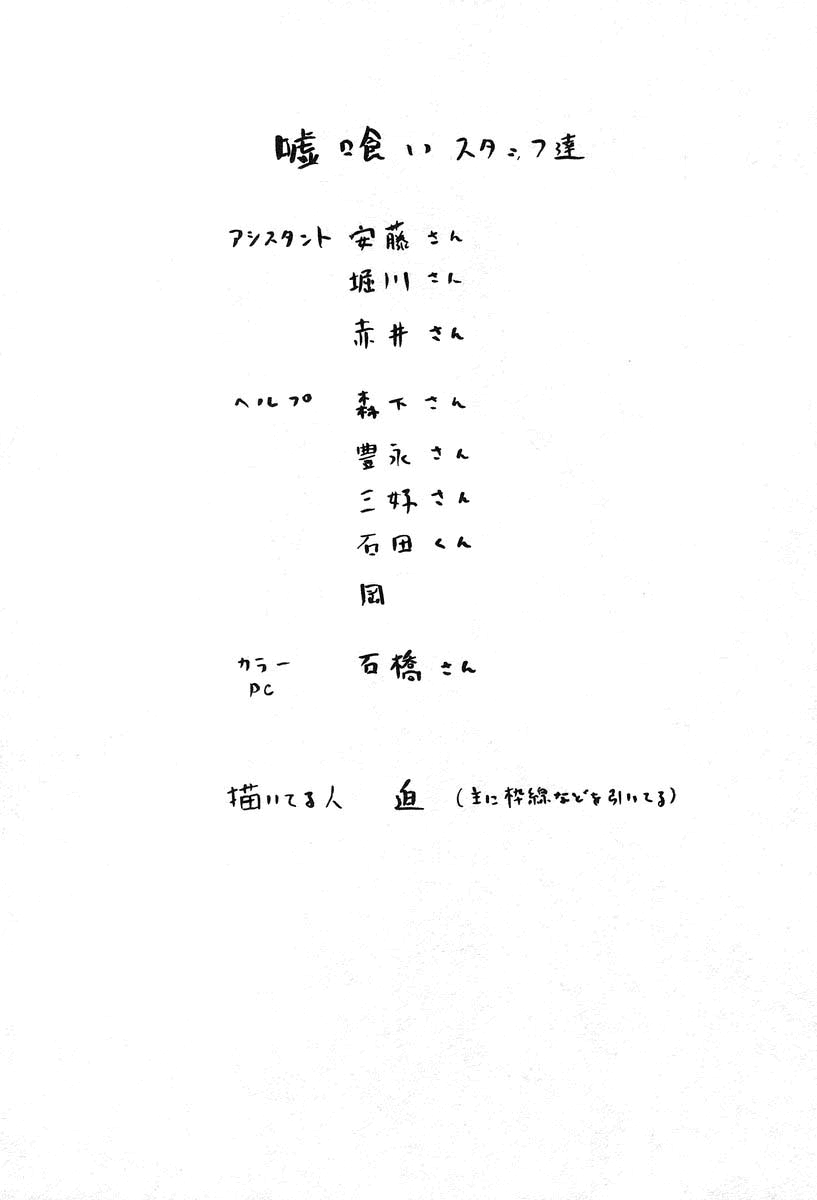 嘘喰いスタッフ達
アシスタント 安藤さん
堀川さん
赤井さん
ヘルプ 森下さん
豊永さん
三好さん
石田くん
岡
カラー 石橋さん
PC
描いてる人 迫 (主に枠線などを引いてる)